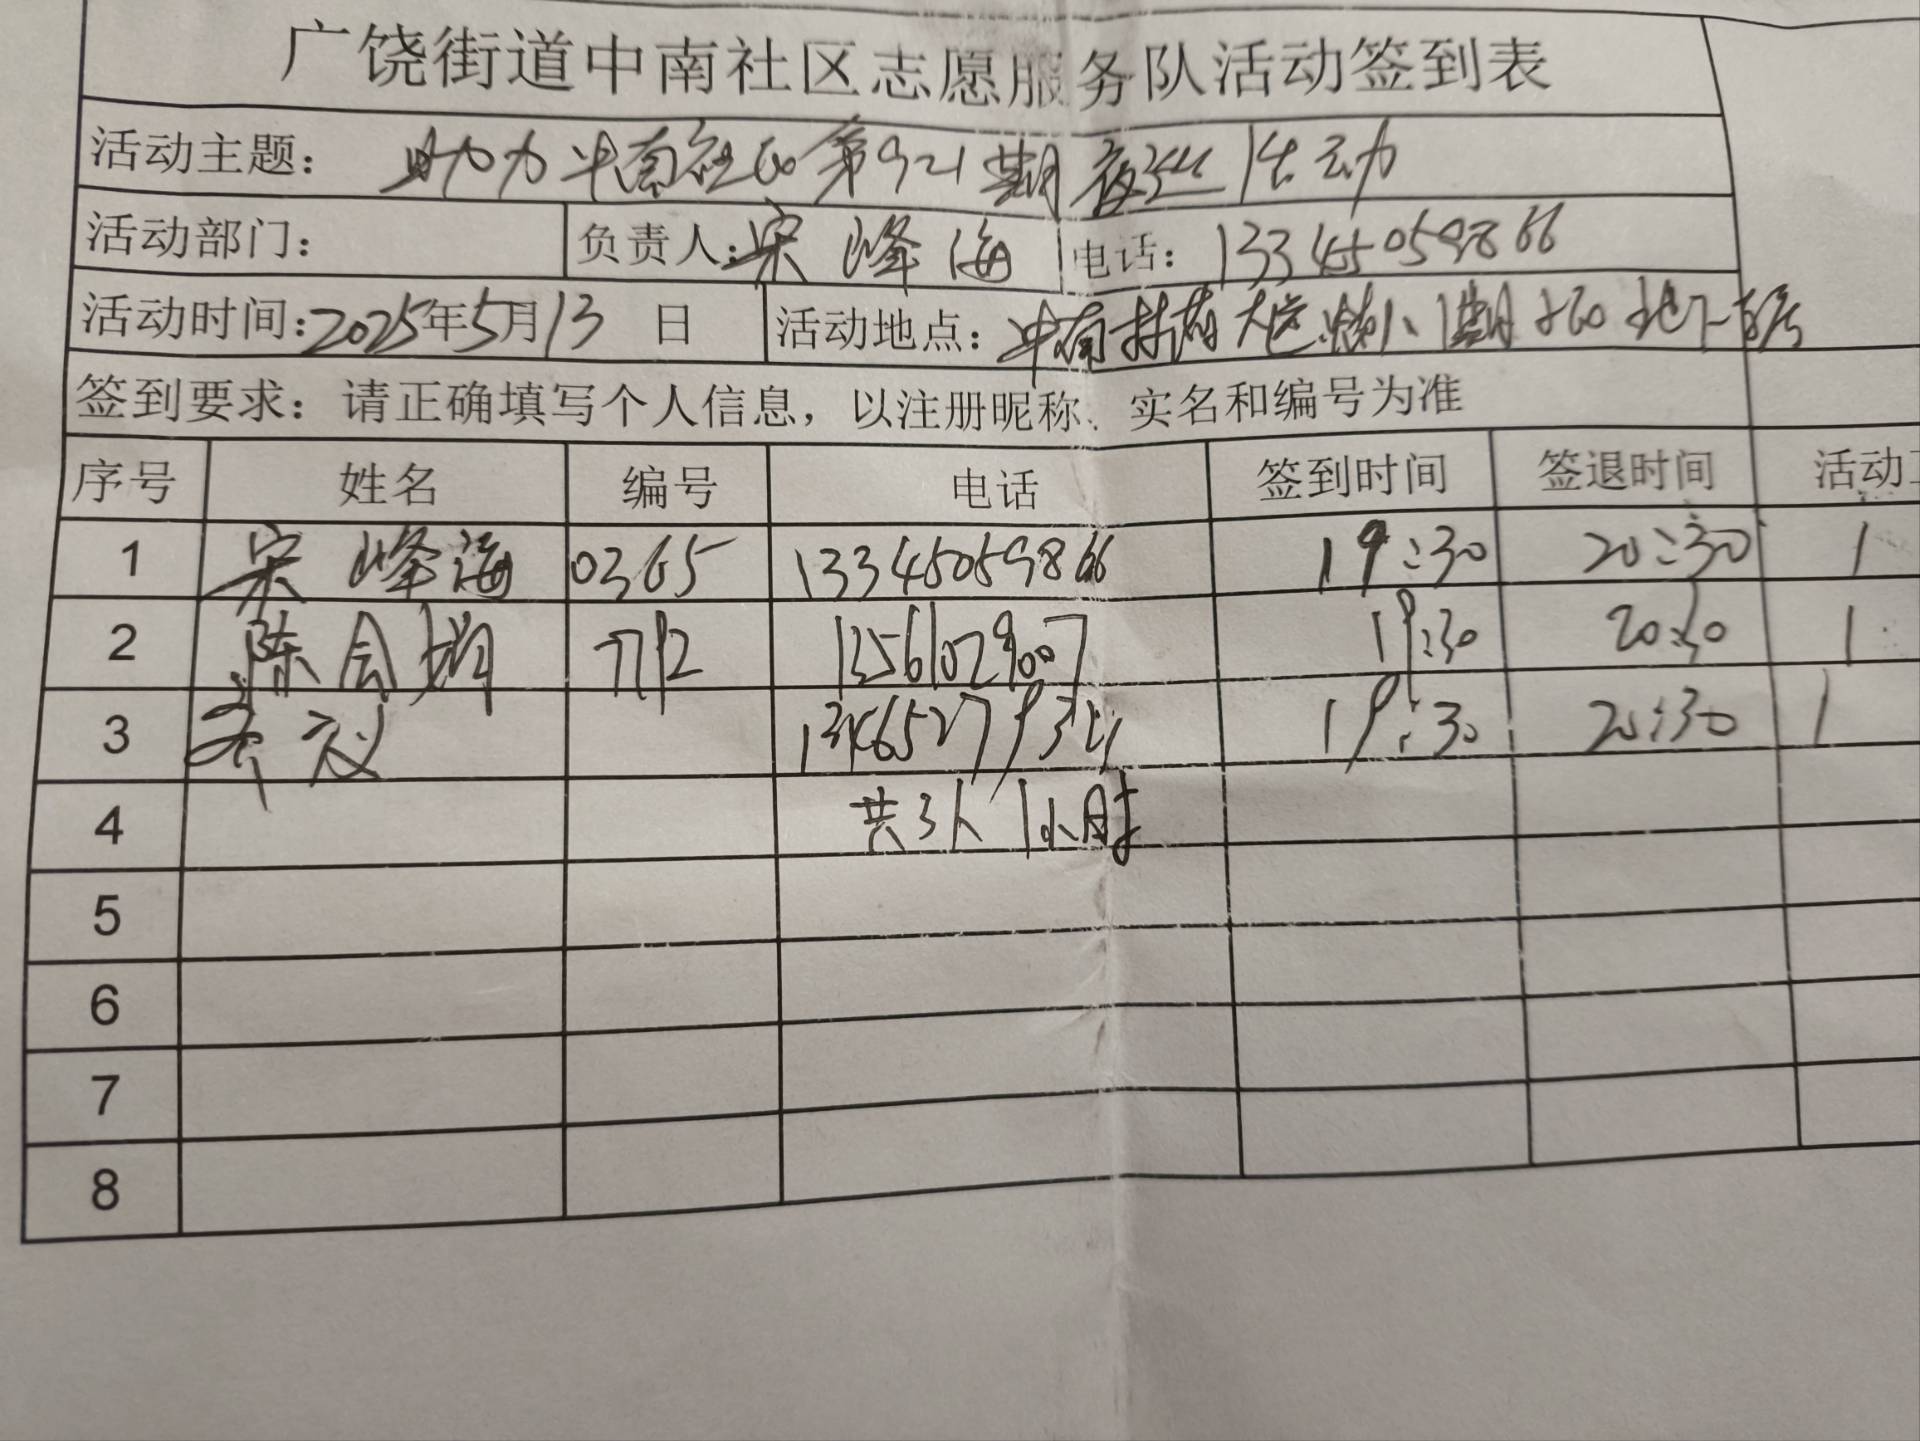 广饶街道中南社区志愿服务队活动签到表
活动主题: 助力中南社区第921期夜巡活动
活动部门: 负责人: 宋峰海 电话: 13345059866
活动时间: 2025年5月13日 活动地点: 中南 期 地下
签到要求: 请正确填写个人信息, 以注册昵称、实名和编号为准
序号 姓名 编号 电话 签到时间 签退时间 活动
1 宋峰海 0365 13345059866 19:30 20:30 1
2 陈会娟 712 13561029007 19:30 20:30 1
3 19:30 20:30 1
4 共3人 1小时
5
6
7
8